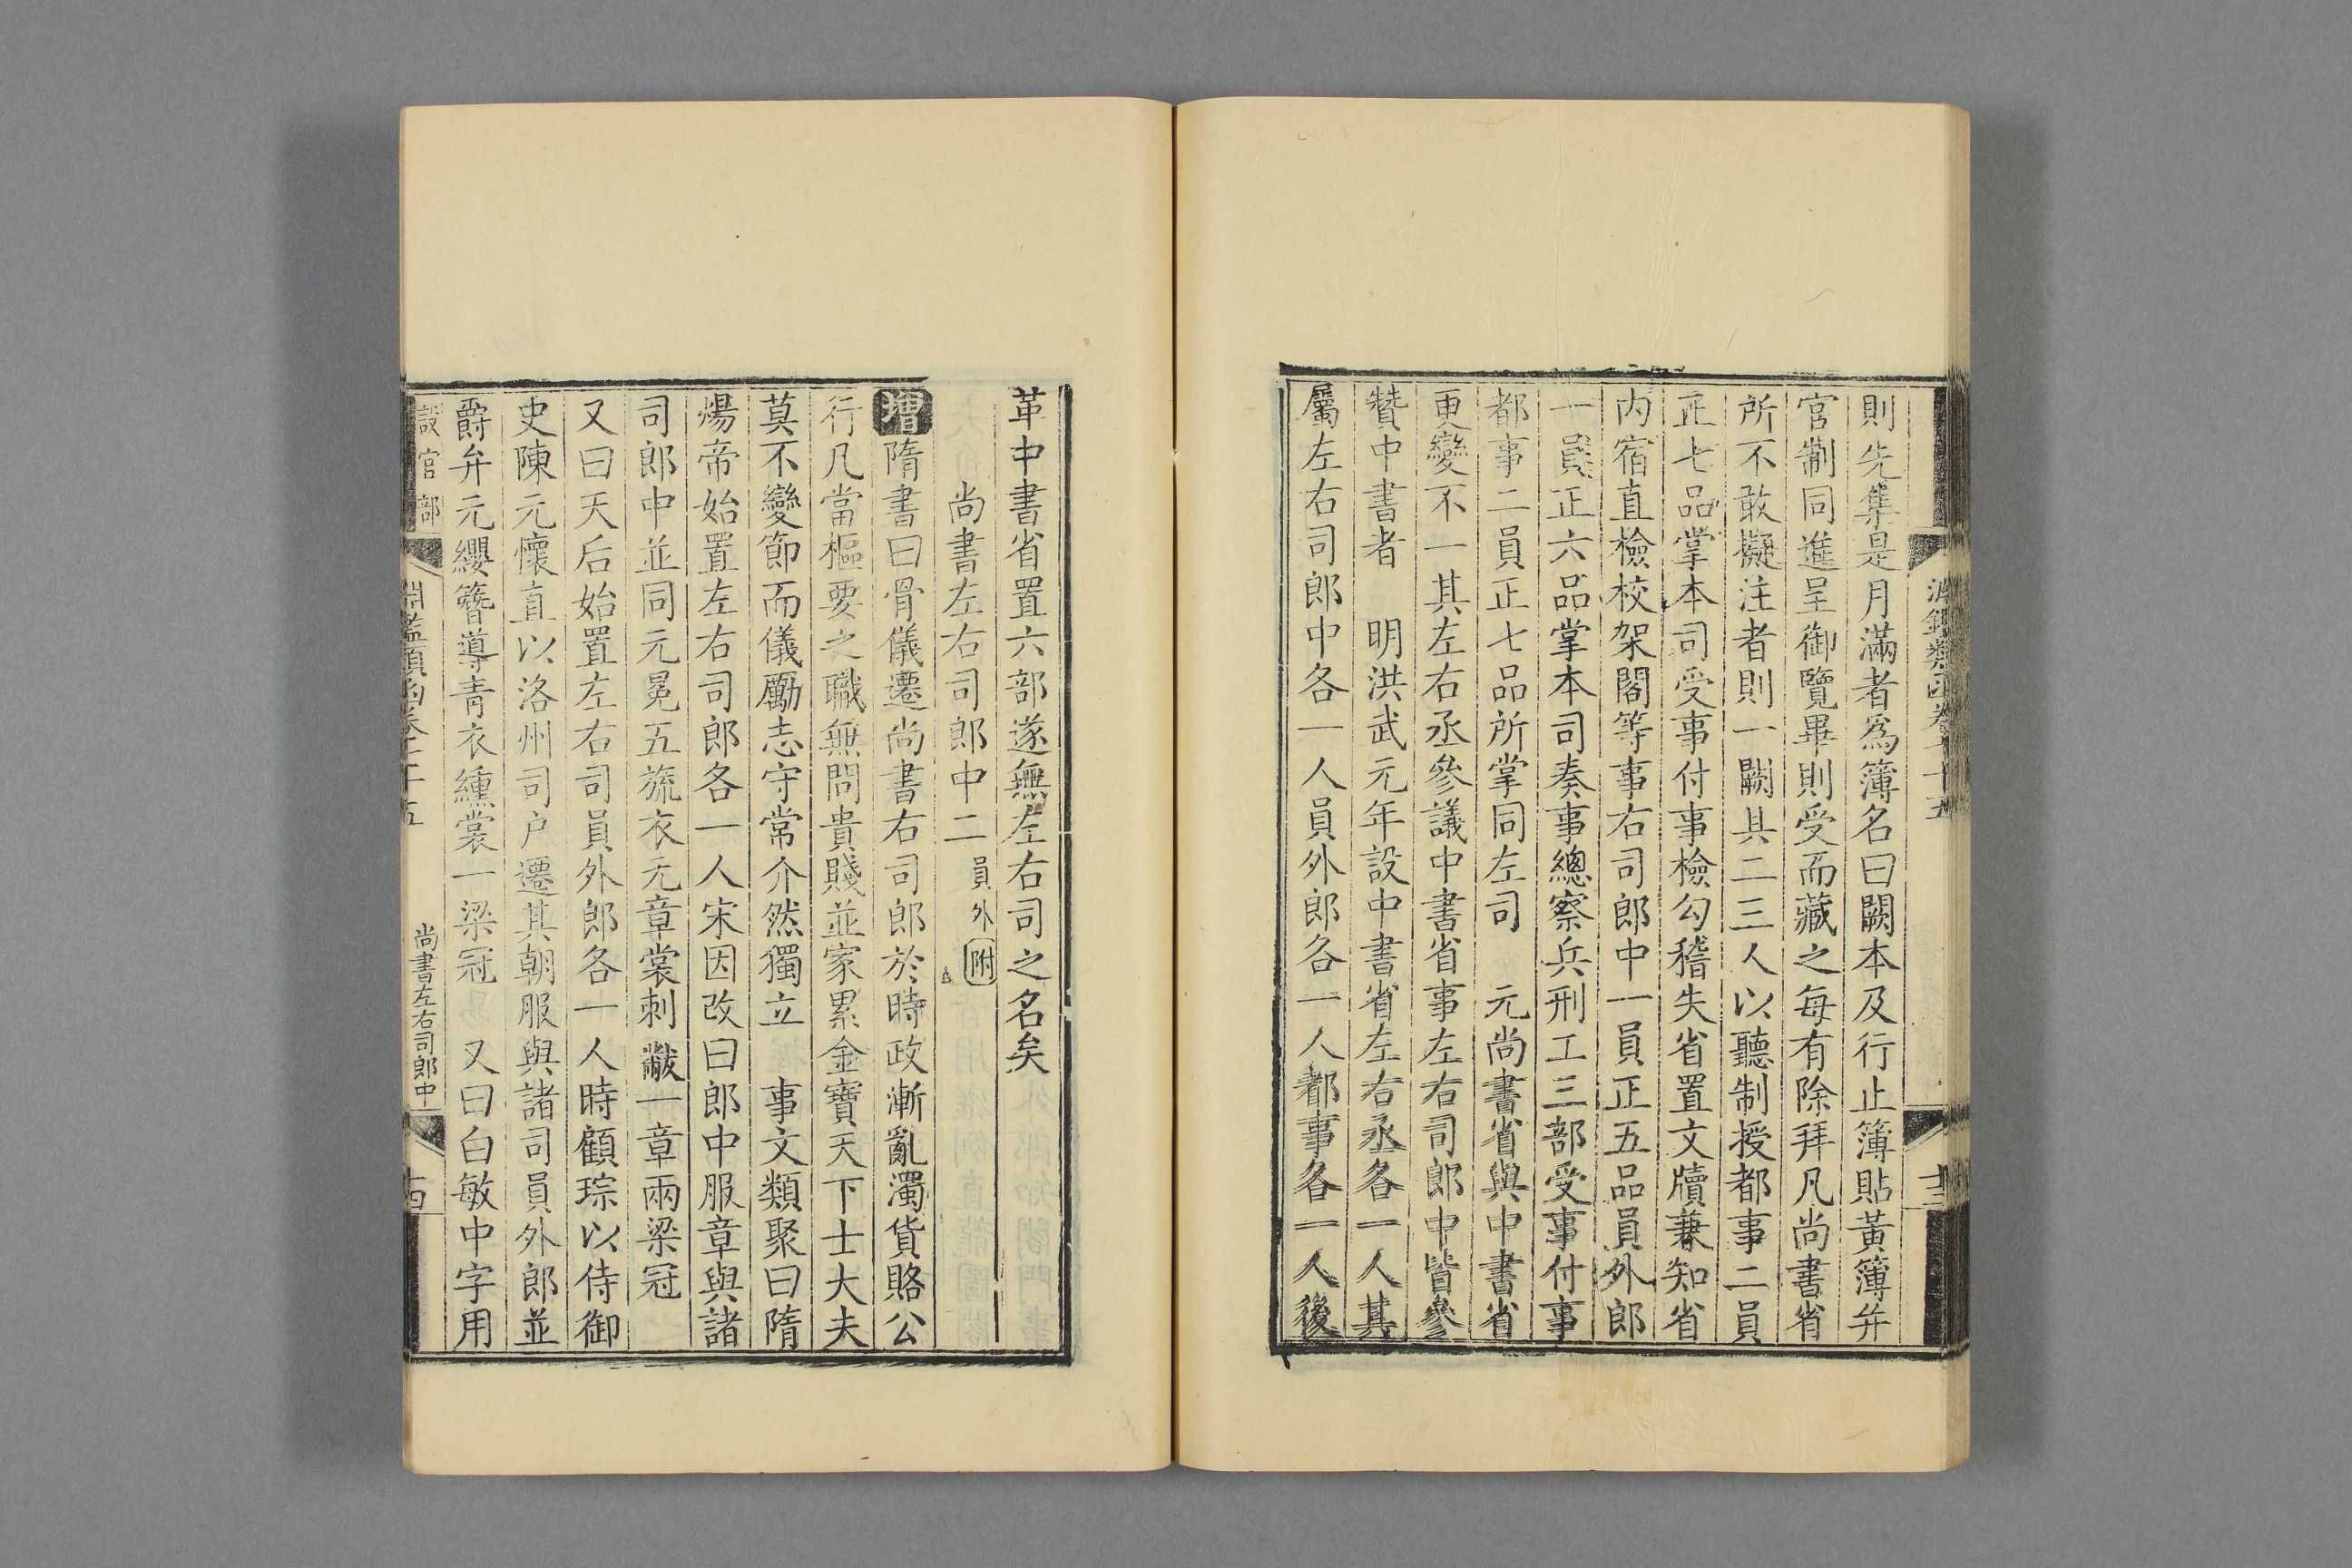 則先集是月滿者爲簿名曰闕本及行止簿貼黃簿并
官制同進呈御覽畢則受而藏之每有除拜凡尚書省
所不敢擬注者則一闕具二三人以聽制授都事二員
正七品掌本司受事付事檢勾稽失省置文牘兼知省
内宿直檢校架閣等事右司郎中一員正五品員外郎
一員正六品掌本司奏事總察兵刑工三部受事付事
都事二員正七品所掌同左司　元尚書省與中書省
更變不一其左右丞參議中書省事左右司郎中皆參
贊中書者　明洪武元年設中書省左右丞各一人其
屬左右司郎中各一人員外郎各一人都事各一人後
革中書省置六部遂無左右司之名矣
尚書左右司郎中二員外附
增隋書曰骨儀遷尚書右司郎於時政漸亂濁貨賂公
行凡當樞要之職無問貴賤並家累金寶天下士大夫
莫不變節而儀勵志守常介然獨立　事文類聚曰隋
煬帝始置左右司郎各一人宋因改曰郎中服章與諸
司郎中並同元冕五旒衣元章裳刺黻一章兩梁冠
又曰天后始置左右司員外郎各一人時顧琮以侍御
史陳元懷直以洛州司户遷其朝服與諸司員外郎並
爵弁元纓簪導青衣纁裳一梁冠　又曰白敏中字用
設官部　淵鑑類函卷七十五　尚書左右司郎中　十四